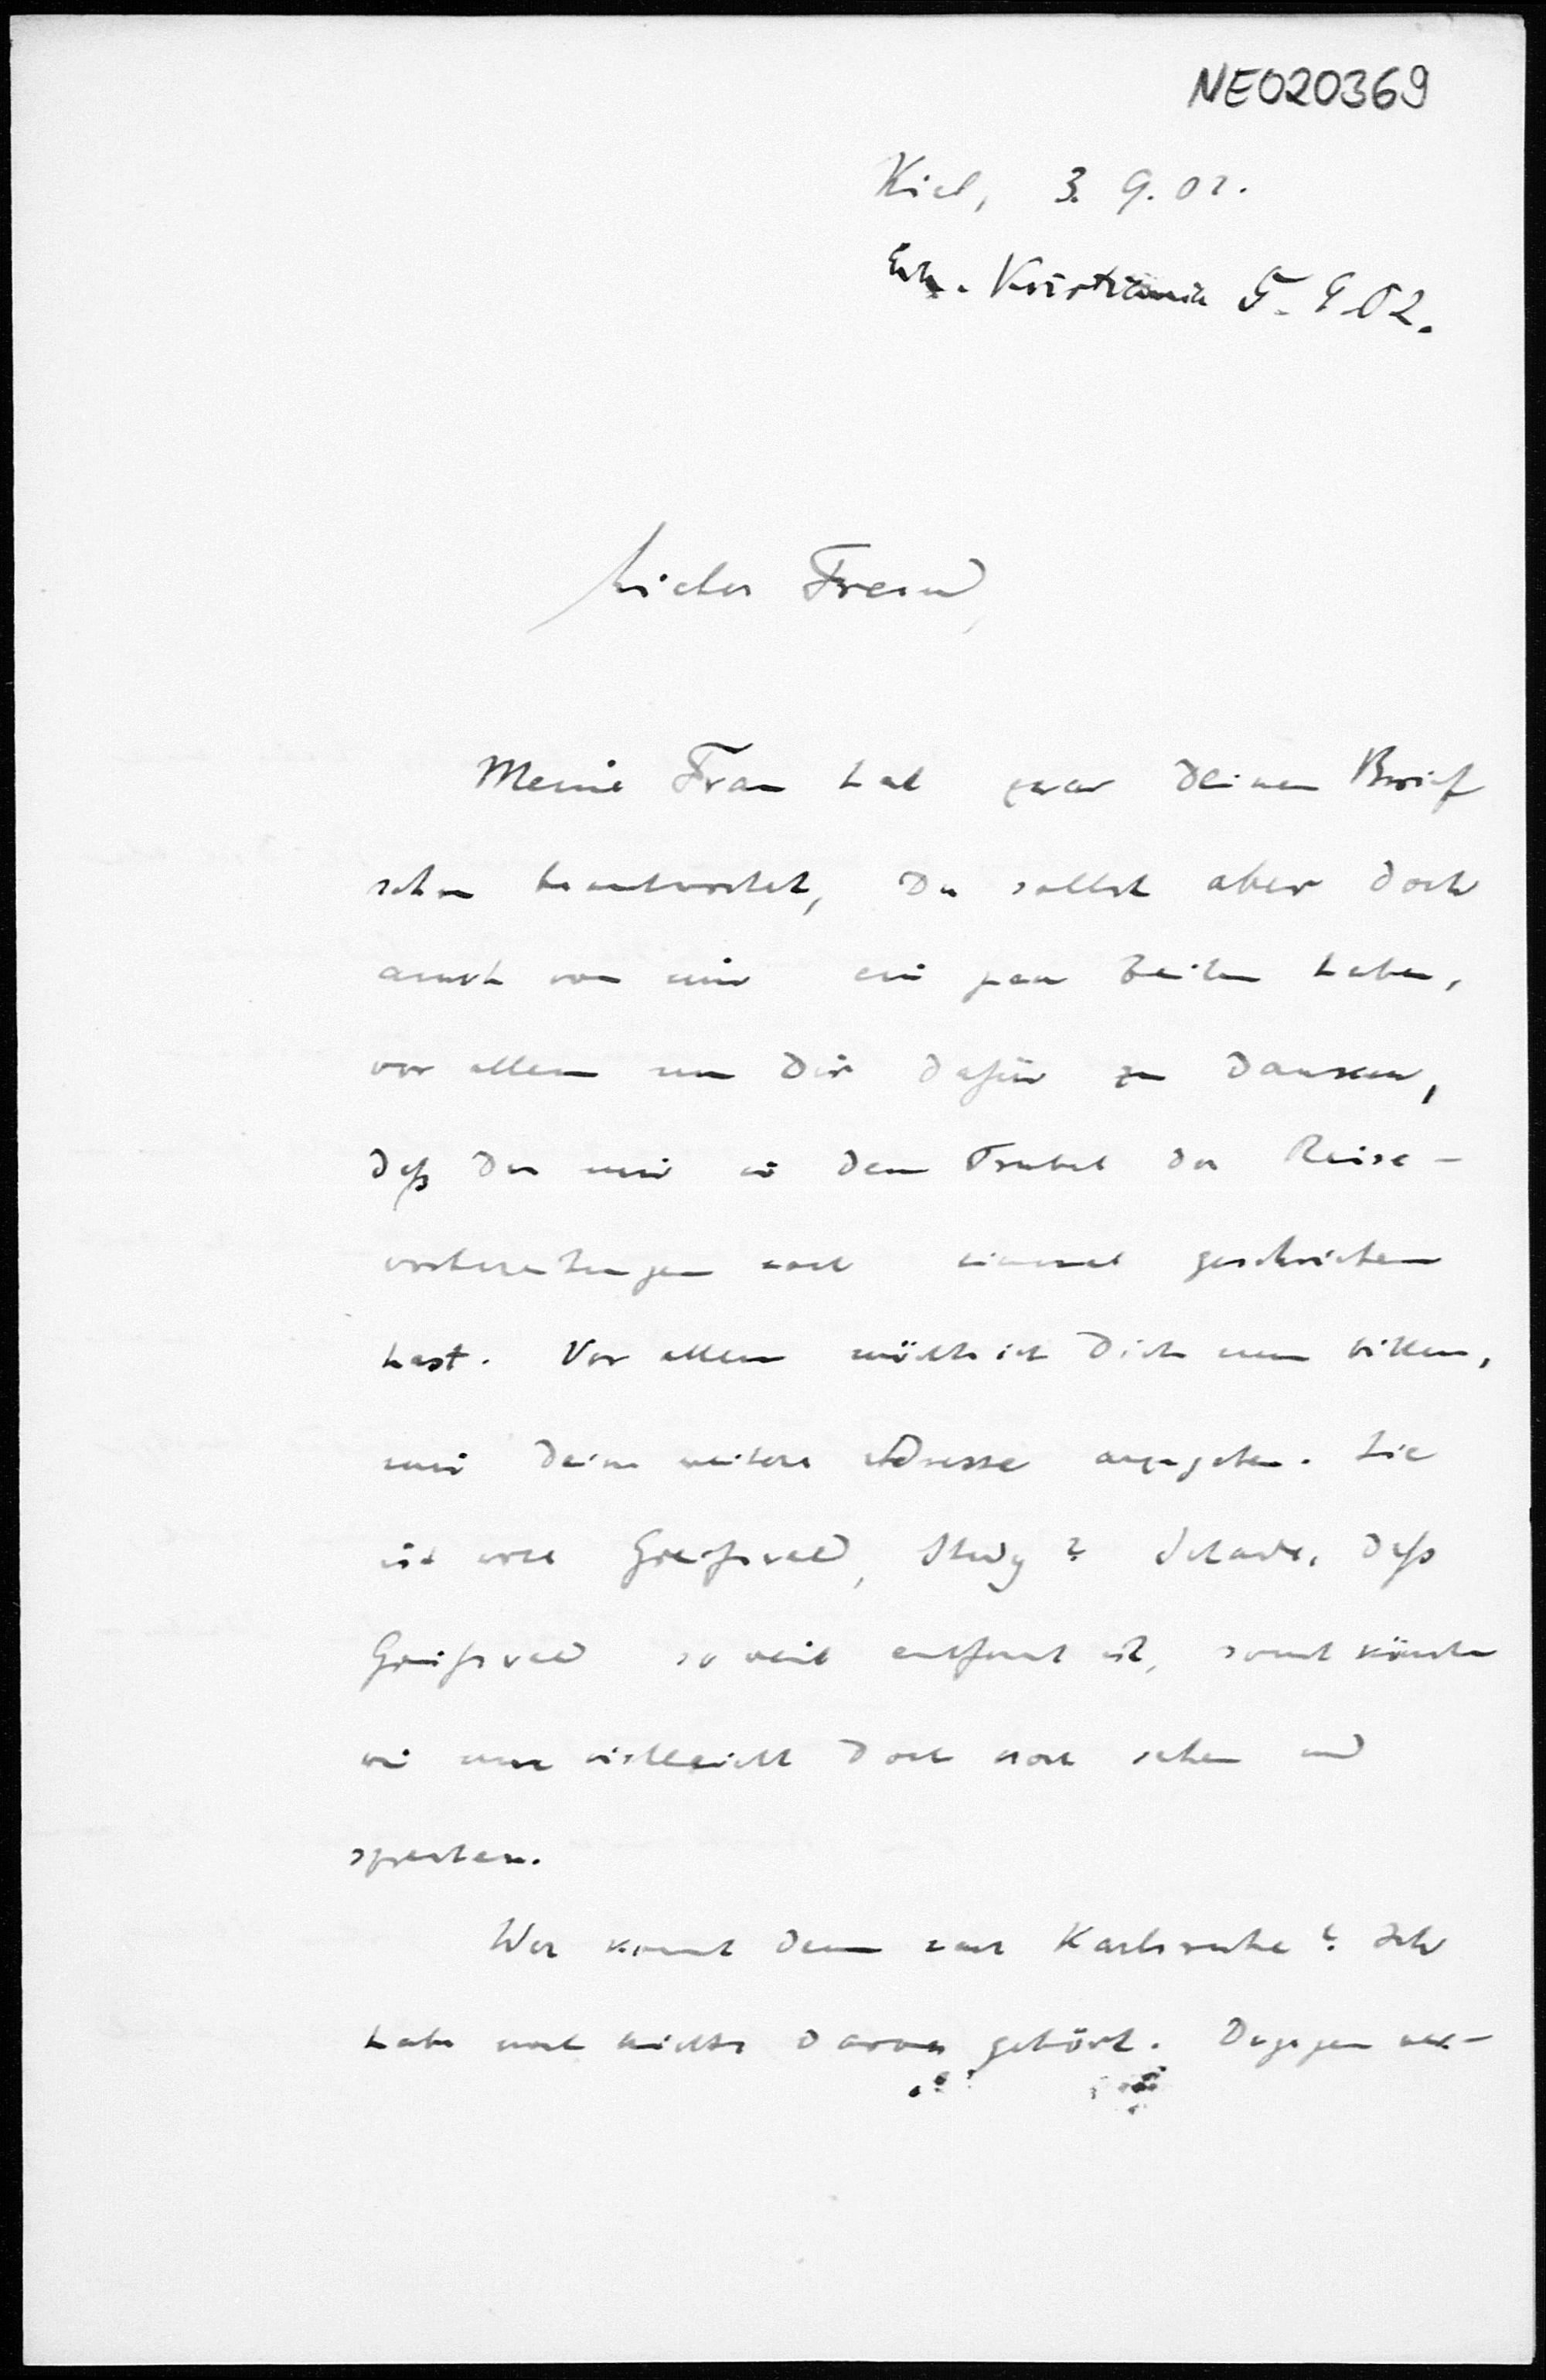 NE020369
Kiel, 3. 9. 02.
Erh. Kristiania 5. 9 02.
Lieber Freund,
Meine Frau hat zwar Deinen Brief
schon beantwortet, Du sollst aber doch
auch von mir ein paar Zeilen haben,
vor allem um Dir dafür zu danken,
daß Du mir in dem Trubel der Reise-
vorbereitungen noch einmal geschrieben
hast. Vor allem möchte ich Dich nun bitten,
mir Deine weitere Adresse anzugeben. Sie
ist wohl Greifswald, ? Schade, daß
Greifswald so weit entfernt ist, sonst könnten
wir uns vielleicht doch noch sehen und
sprechen.
Wer kommt denn nach Karlsruhe? Ich
habe noch nichts davon gehört. Dagegen